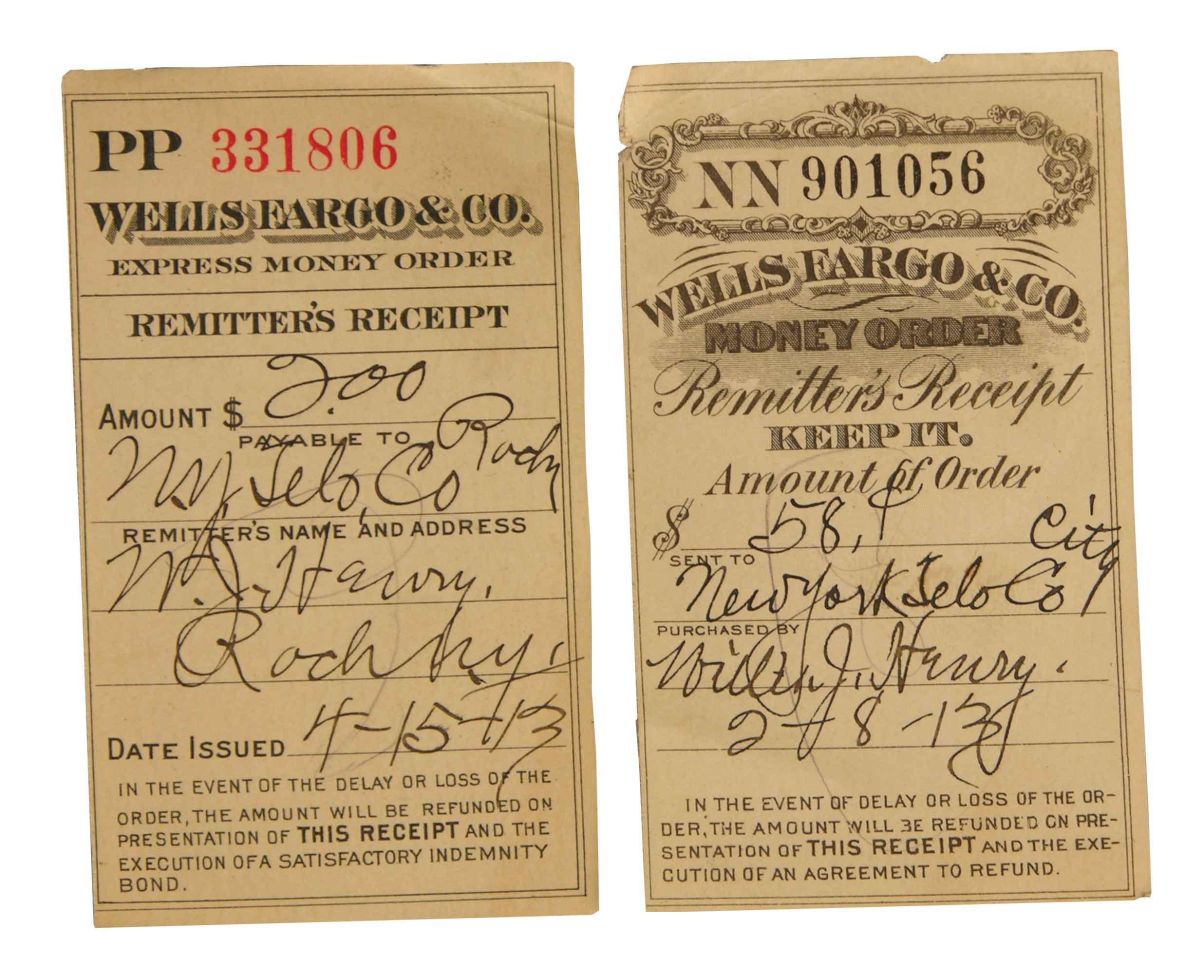 PP 331806
WELLS FARGO & CO.
EXPRESS MONEY ORDER
REMITTER'S RECEIPT
AMOUNT $ 2.00
PAYABLE TO Roch
N.Y. Telo, Co
REMITTER'S NAME AND ADDRESS
W. J. Henry,
Roch N.Y.
DATE ISSUED 4-15-13
IN THE EVENT OF THE DELAY OR LOSS OF THE
ORDER, THE AMOUNT WILL BE REFUNDED ON
PRESENTATION OF THIS RECEIPT AND THE
EXECUTION OF A SATISFACTORY INDEMNITY
BOND.
NN 901056
WELLS FARGO & CO.
MONEY ORDER
Remitter's Receipt
KEEP IT.
Amount of Order
$ 58, City
SENT TO
New York Telo Co
PURCHASED BY
J. Henry.
2-8-13
IN THE EVENT OF DELAY OR LOSS OF THE OR-
DER, THE AMOUNT WILL BE REFUNDED ON PRE-
SENTATION OF THIS RECEIPT AND THE EXE-
CUTION OF AN AGREEMENT TO REFUND.